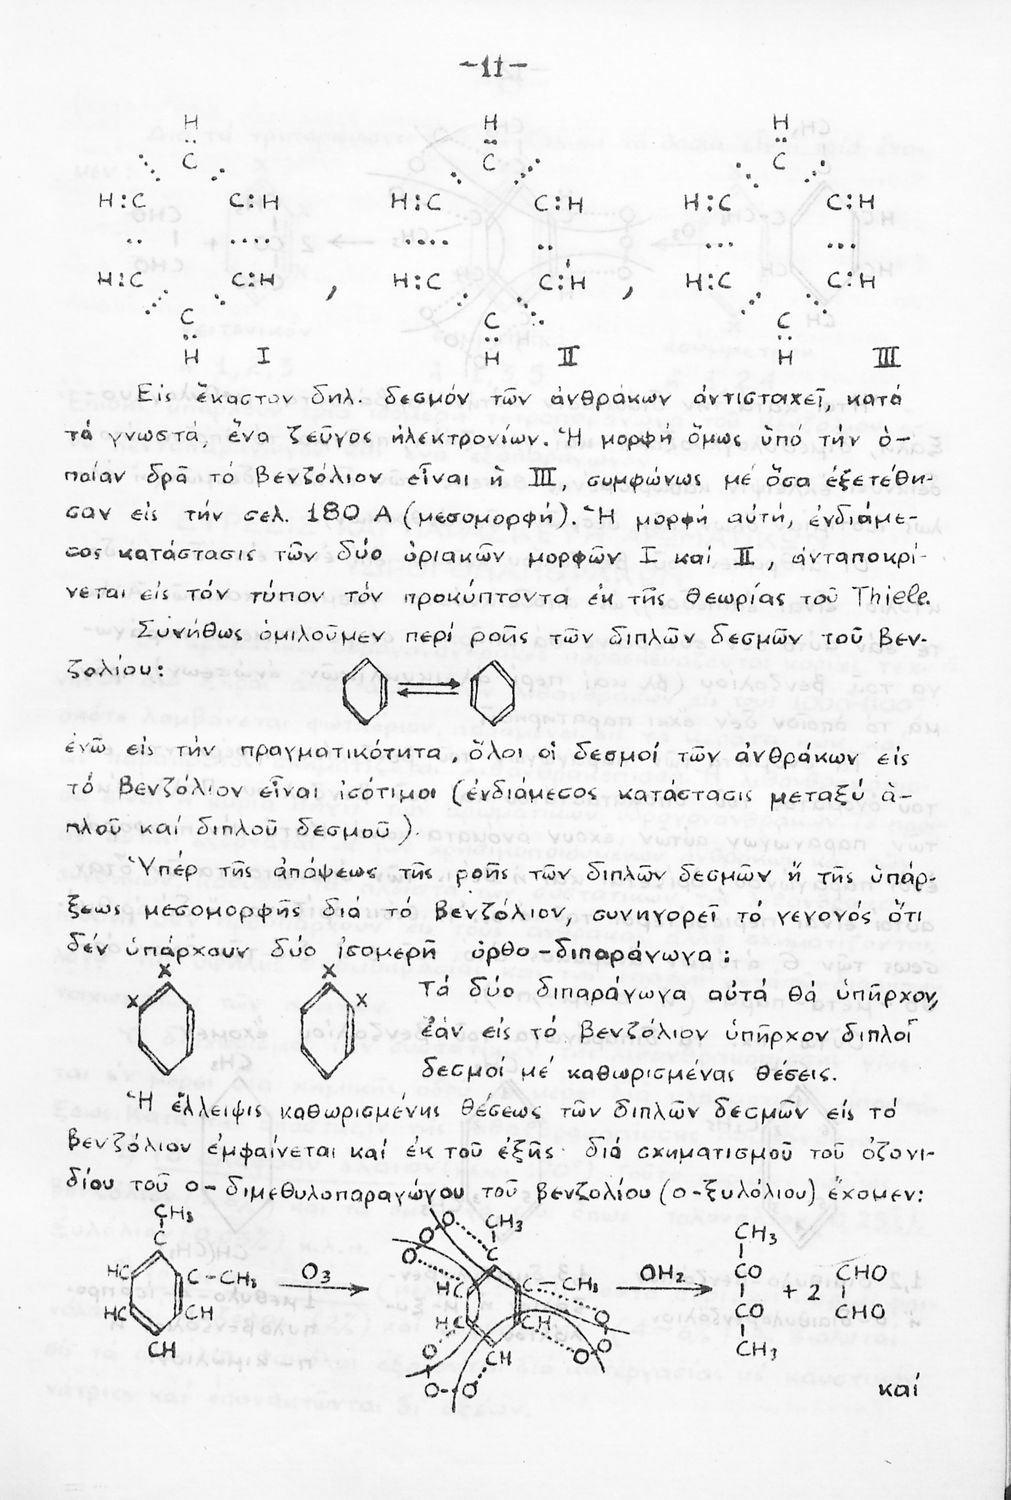 -11-
H H H
C C C
H:C C:H H:C C:H H:C C:H
H:C C:H , H:C C:H , H:C C:H
C C C
H I H II H III
Εἰς ἕκαστον δηλ. δεσμόν τῶν ἀνθράκων ἀντιστοιχεῖ, κατά
τά γνωστά, ἕνα ζεῦγος ἠλεκτρονίων. Ἡ μορφή ὅμως ὑπό τήν ὁ-
ποίαν δρᾶ τό βενζόλιον εἶναι ἡ III, συμφώνως μέ ὅσα ἐξετέθη-
σαν εἰς τήν σελ. 180 Α (μεσομορφή). Ἡ μορφή αὐτή, ἐνδιάμε-
σος κατάστασις τῶν δύο ὁριακῶν μορφῶν I καί II, ἀνταποκρί-
νεται εἰς τόν τύπον τόν προκύπτοντα ἐκ τῆς θεωρίας τοῦ Thiele.
Συνήθως ὁμιλοῦμεν περί ροῆς τῶν διπλῶν δεσμῶν τοῦ βεν-
ζολίου:
ἐνῶ εἰς τήν πραγματικότητα, ὅλοι οἱ δεσμοί τῶν ἀνθράκων εἰς
τό βενζόλιον εἶναι ἰσότιμοι (ἐνδιάμεσος κατάστασις μεταξύ ἁ-
πλοῦ καί διπλοῦ δεσμοῦ).
Ὑπέρ τῆς ἀπόψεως τῆς ροῆς τῶν διπλῶν δεσμῶν ἤ τῆς ὑπάρ-
ξεως μεσομορφῆς διά τό βενζόλιον, συνηγορεῖ τό γεγονός ὅτι
δέν ὑπάρχουν δύο ἰσομερῆ ὀρθο-διπαράγωγα:
X X
X X
Τά δύο διπαράγωγα αὐτά θά ὑπῆρχον,
ἐάν εἰς τό βενζόλιον ὑπῆρχον διπλοῖ
δεσμοί μέ καθωρισμένας θέσεις.
Ἡ ἔλλειψις καθωρισμένης θέσεως τῶν διπλῶν δεσμῶν εἰς τό
βενζόλιον ἐμφαίνεται καί ἐκ τοῦ ἑξῆς· διά σχηματισμοῦ τοῦ ὀζονι-
δίου τοῦ ο-διμεθυλοπαραγώγου τοῦ βενζολίου (ο-ξυλόλιου) ἔχομεν:
CH₃ O O CH₃ CH₃
C O C
HC C-CH₃ O₃ HC C-CH₃ OH₂ CO + 2 CHO
HC CH HC CH O CO CHO
CH O CH O O CH₃
O-O
καί